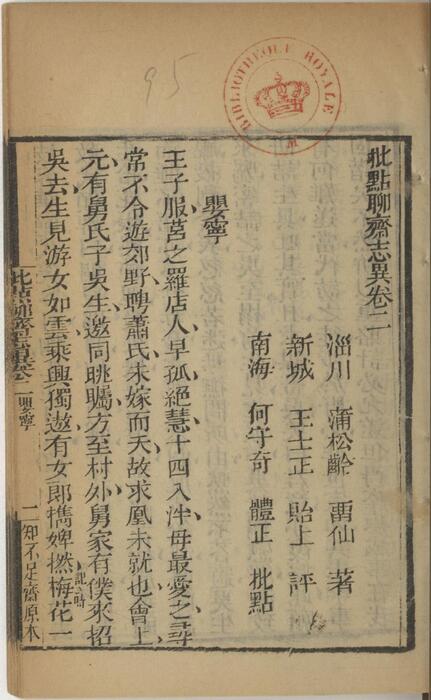 95
BIBLIOTHEQUE ROYALE
批點聊齋志異卷二
淄川 蒲松齡 畱仙 著
新城 王士正 貽上 評
南海 何守奇 體正 批點
嬰寧
王子服莒之羅店人早孤絕慧十四入泮母最愛之尋
常不令遊郊野聘蕭氏未嫁而夭故求凰未就也會上
元有舅氏子吳生邀同眺矚方至村外舅家有僕來招
吳去生見游女如雲乘興獨遨有女郎擕婢撚梅花一
記之時
批點聊齋志異卷二 嬰寧
二 知不足齋原本